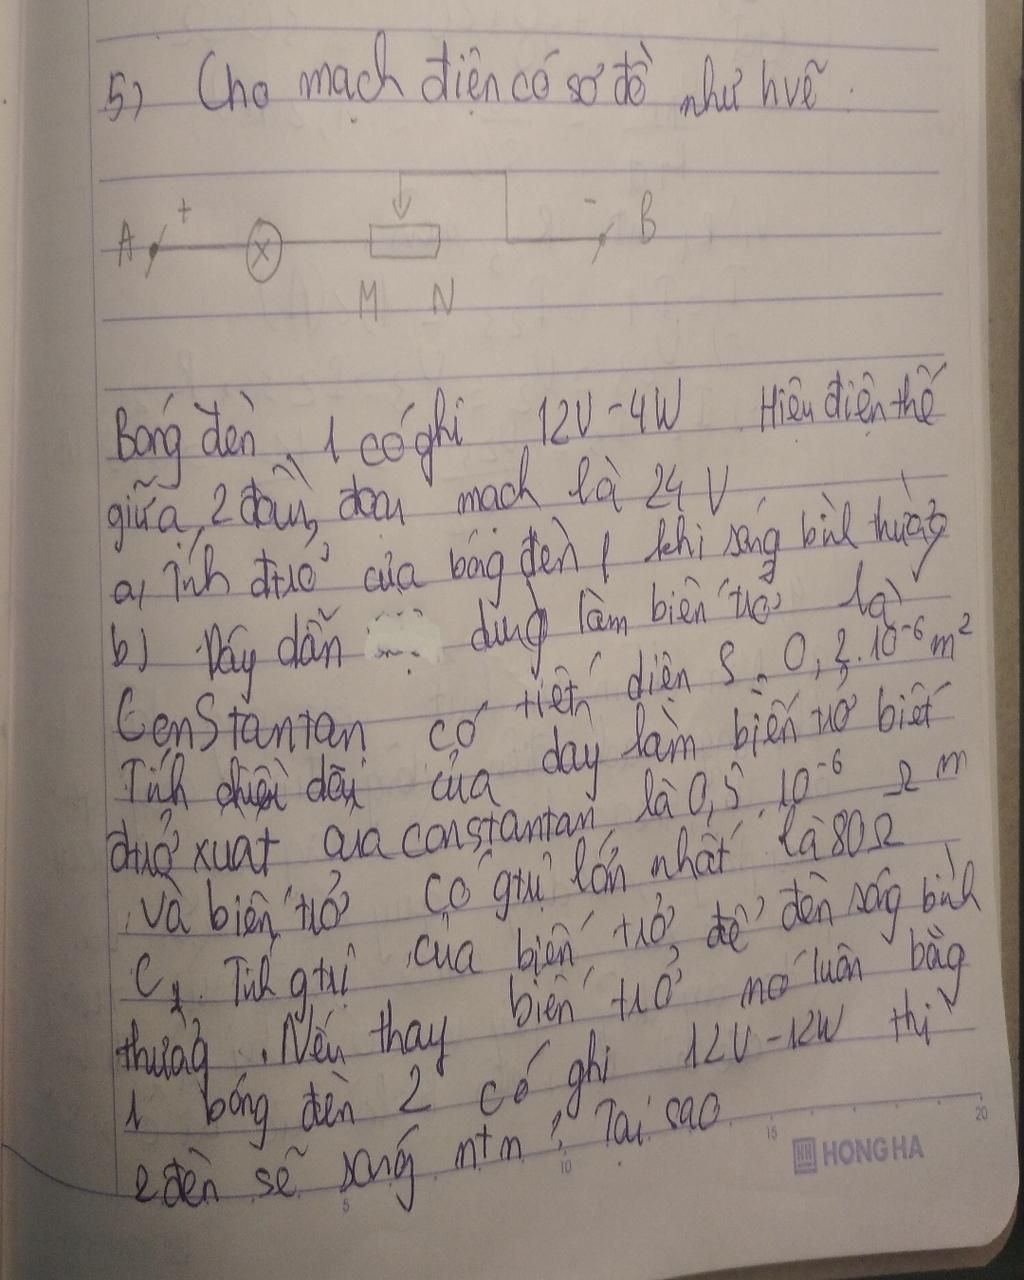 5) Cho mạch điện có sơ đồ như hvẽ.
A + - B
M N
Bóng đèn 1 có ghi 12V-4W Hiệu điện thế
giữa 2 đầu đoạn mạch là 24 V
a, Tính đtrở của bóng đèn 1 khi sáng bình thường
b) Dây dẫn dùng làm biến trở là
Constantan có tiết diện S = 0,2.10⁻⁶ m²
Tính chiều dài của dây làm biến trở biết
đtrở xuất của constantan là 0,5.10⁻⁶ Ω m
và biến trở có gtrị lớn nhất là 80Ω
C, Tính gtrị của biến trở để đèn sáng bình
thường. Nếu thay biến trở nói luôn bằng
1 bóng đèn 2 có ghi 12V-12W thì
2 đèn sẽ sáng ntn? Tại sao
5 10 15 20
HH HONG HA